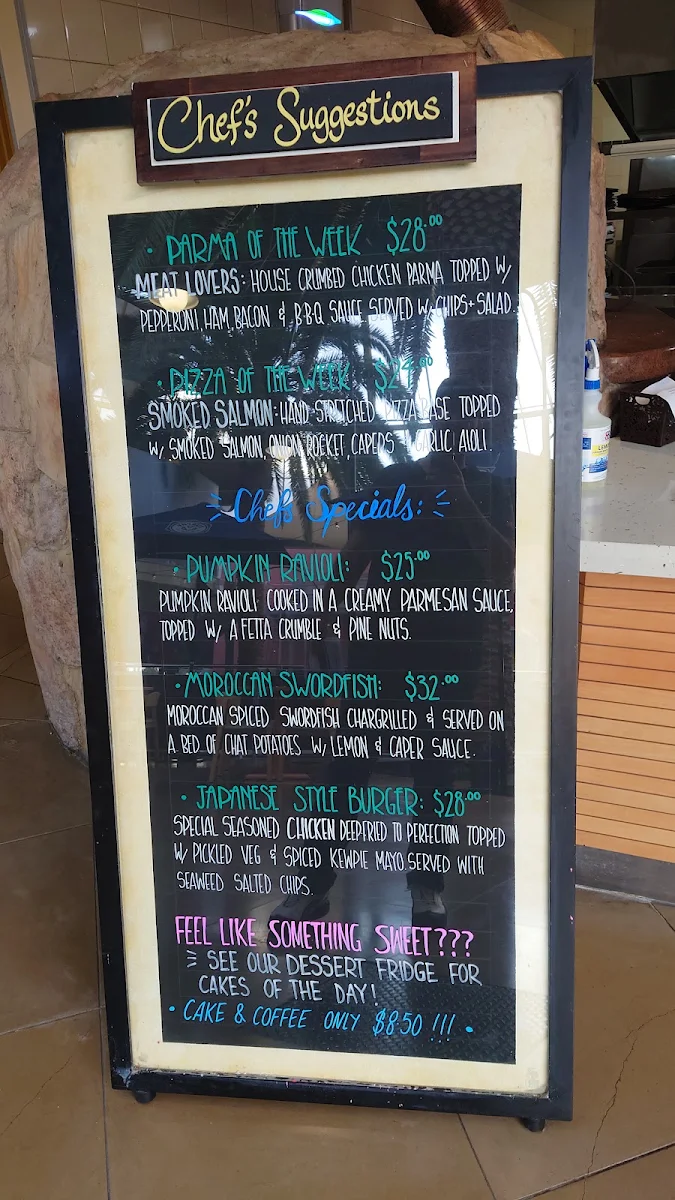 Chef's Suggestions
• PARMA OF THE WEEK $28.00
MEAT LOVERS: HOUSE CRUMBED CHICKEN PARMA TOPPED W/
PEPPERONI, HAM, BACON & B.B.Q. SAUCE SERVED W/ CHIPS + SALAD.
• PIZZA OF THE WEEK
SMOKED SALMON: HAND STRETCHED PIZZA BASE TOPPED
W/ SMOKED SALMON, ONION, ROCKET, CAPERS GARLIC AIOLI.
Chefs Specials:
• PUMPKIN RAVIOLI: $25.00
PUMPKIN RAVIOLI COOKED IN A CREAMY PARMESAN SAUCE,
TOPPED W/ A FETTA CRUMBLE & PINE NUTS.
• MOROCCAN SWORDFISH: $32.00
MOROCCAN SPICED SWORDFISH CHARGRILLED & SERVED ON
A BED OF CHAT POTATOES W/ LEMON & CAPER SAUCE.
• JAPANESE STYLE BURGER: $28.00
SPECIAL SEASONED CHICKEN DEEPFRIED TO PERFECTION TOPPED
W/ PICKLED VEG & SPICED KEWPIE MAYO. SERVED WITH
SEAWEED SALTED CHIPS.
FEEL LIKE SOMETHING SWEET???
SEE OUR DESSERT FRIDGE FOR
CAKES OF THE DAY!
• CAKE & COFFEE ONLY $8.50 !!! •